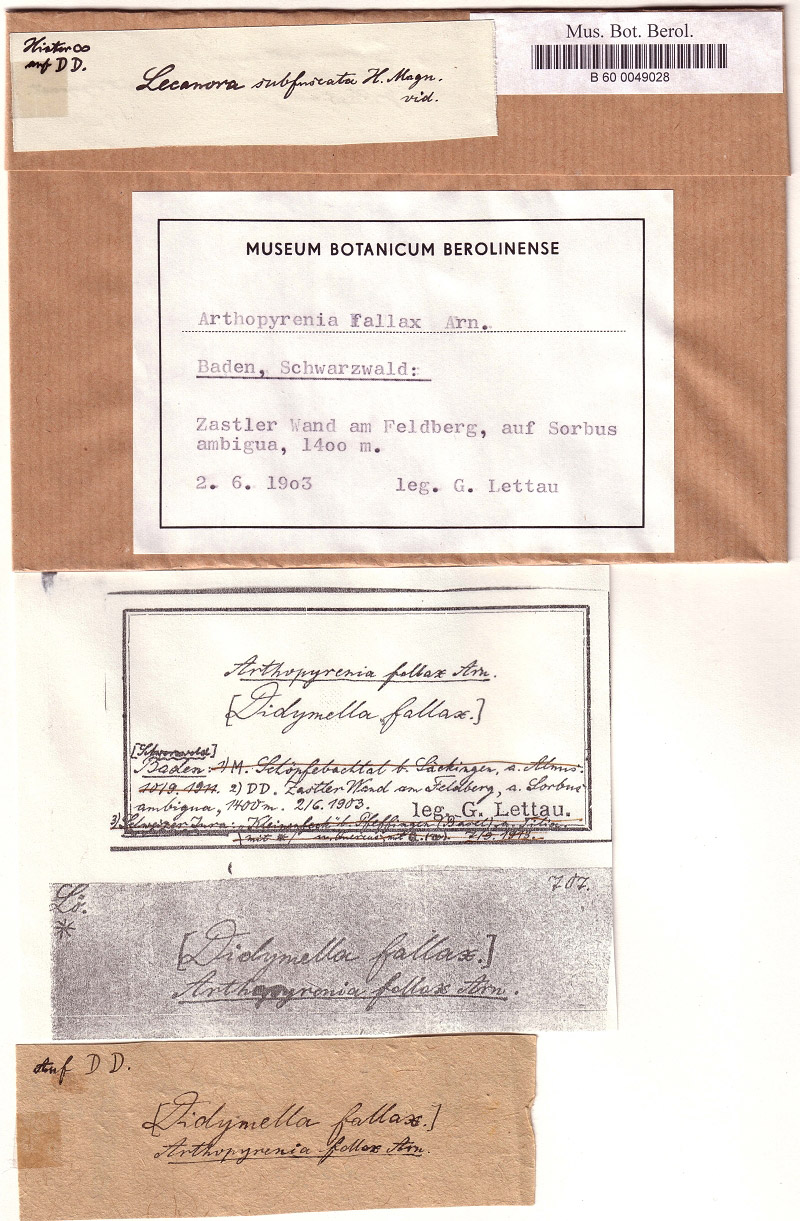 Hinter ∞
auf DD.
Lecanora subfuscata H. Magn.
vid.
Mus. Bot. Berol.
B 60 0049028
MUSEUM BOTANICUM BEROLINENSE
Arthopyrenia fallax Arn.
Baden, Schwarzwald:
Zastler Wand am Feldberg, auf Sorbus
ambigua, 14oo m.
2. 6. 19o3 leg. G. Lettau
Arthopyrenia fallax Arn.
[Didymella fallax.]
[Schwarzwald]
Baden: 1) M. Schöpfebachtal b. Säckingen, a. Alnus.
2) DD. Zastler Wand am Feldberg, a. Sorbus
ambigua, 1400 m. 2/6. 1903. leg. G. Lettau.
3) Schweizer Jura:
Lö. 707.
*
[Didymella fallax.]
Arthopyrenia fallax Arn.
Auf DD.
[Didymella fallax.]
Arthopyrenia fallax Arn.